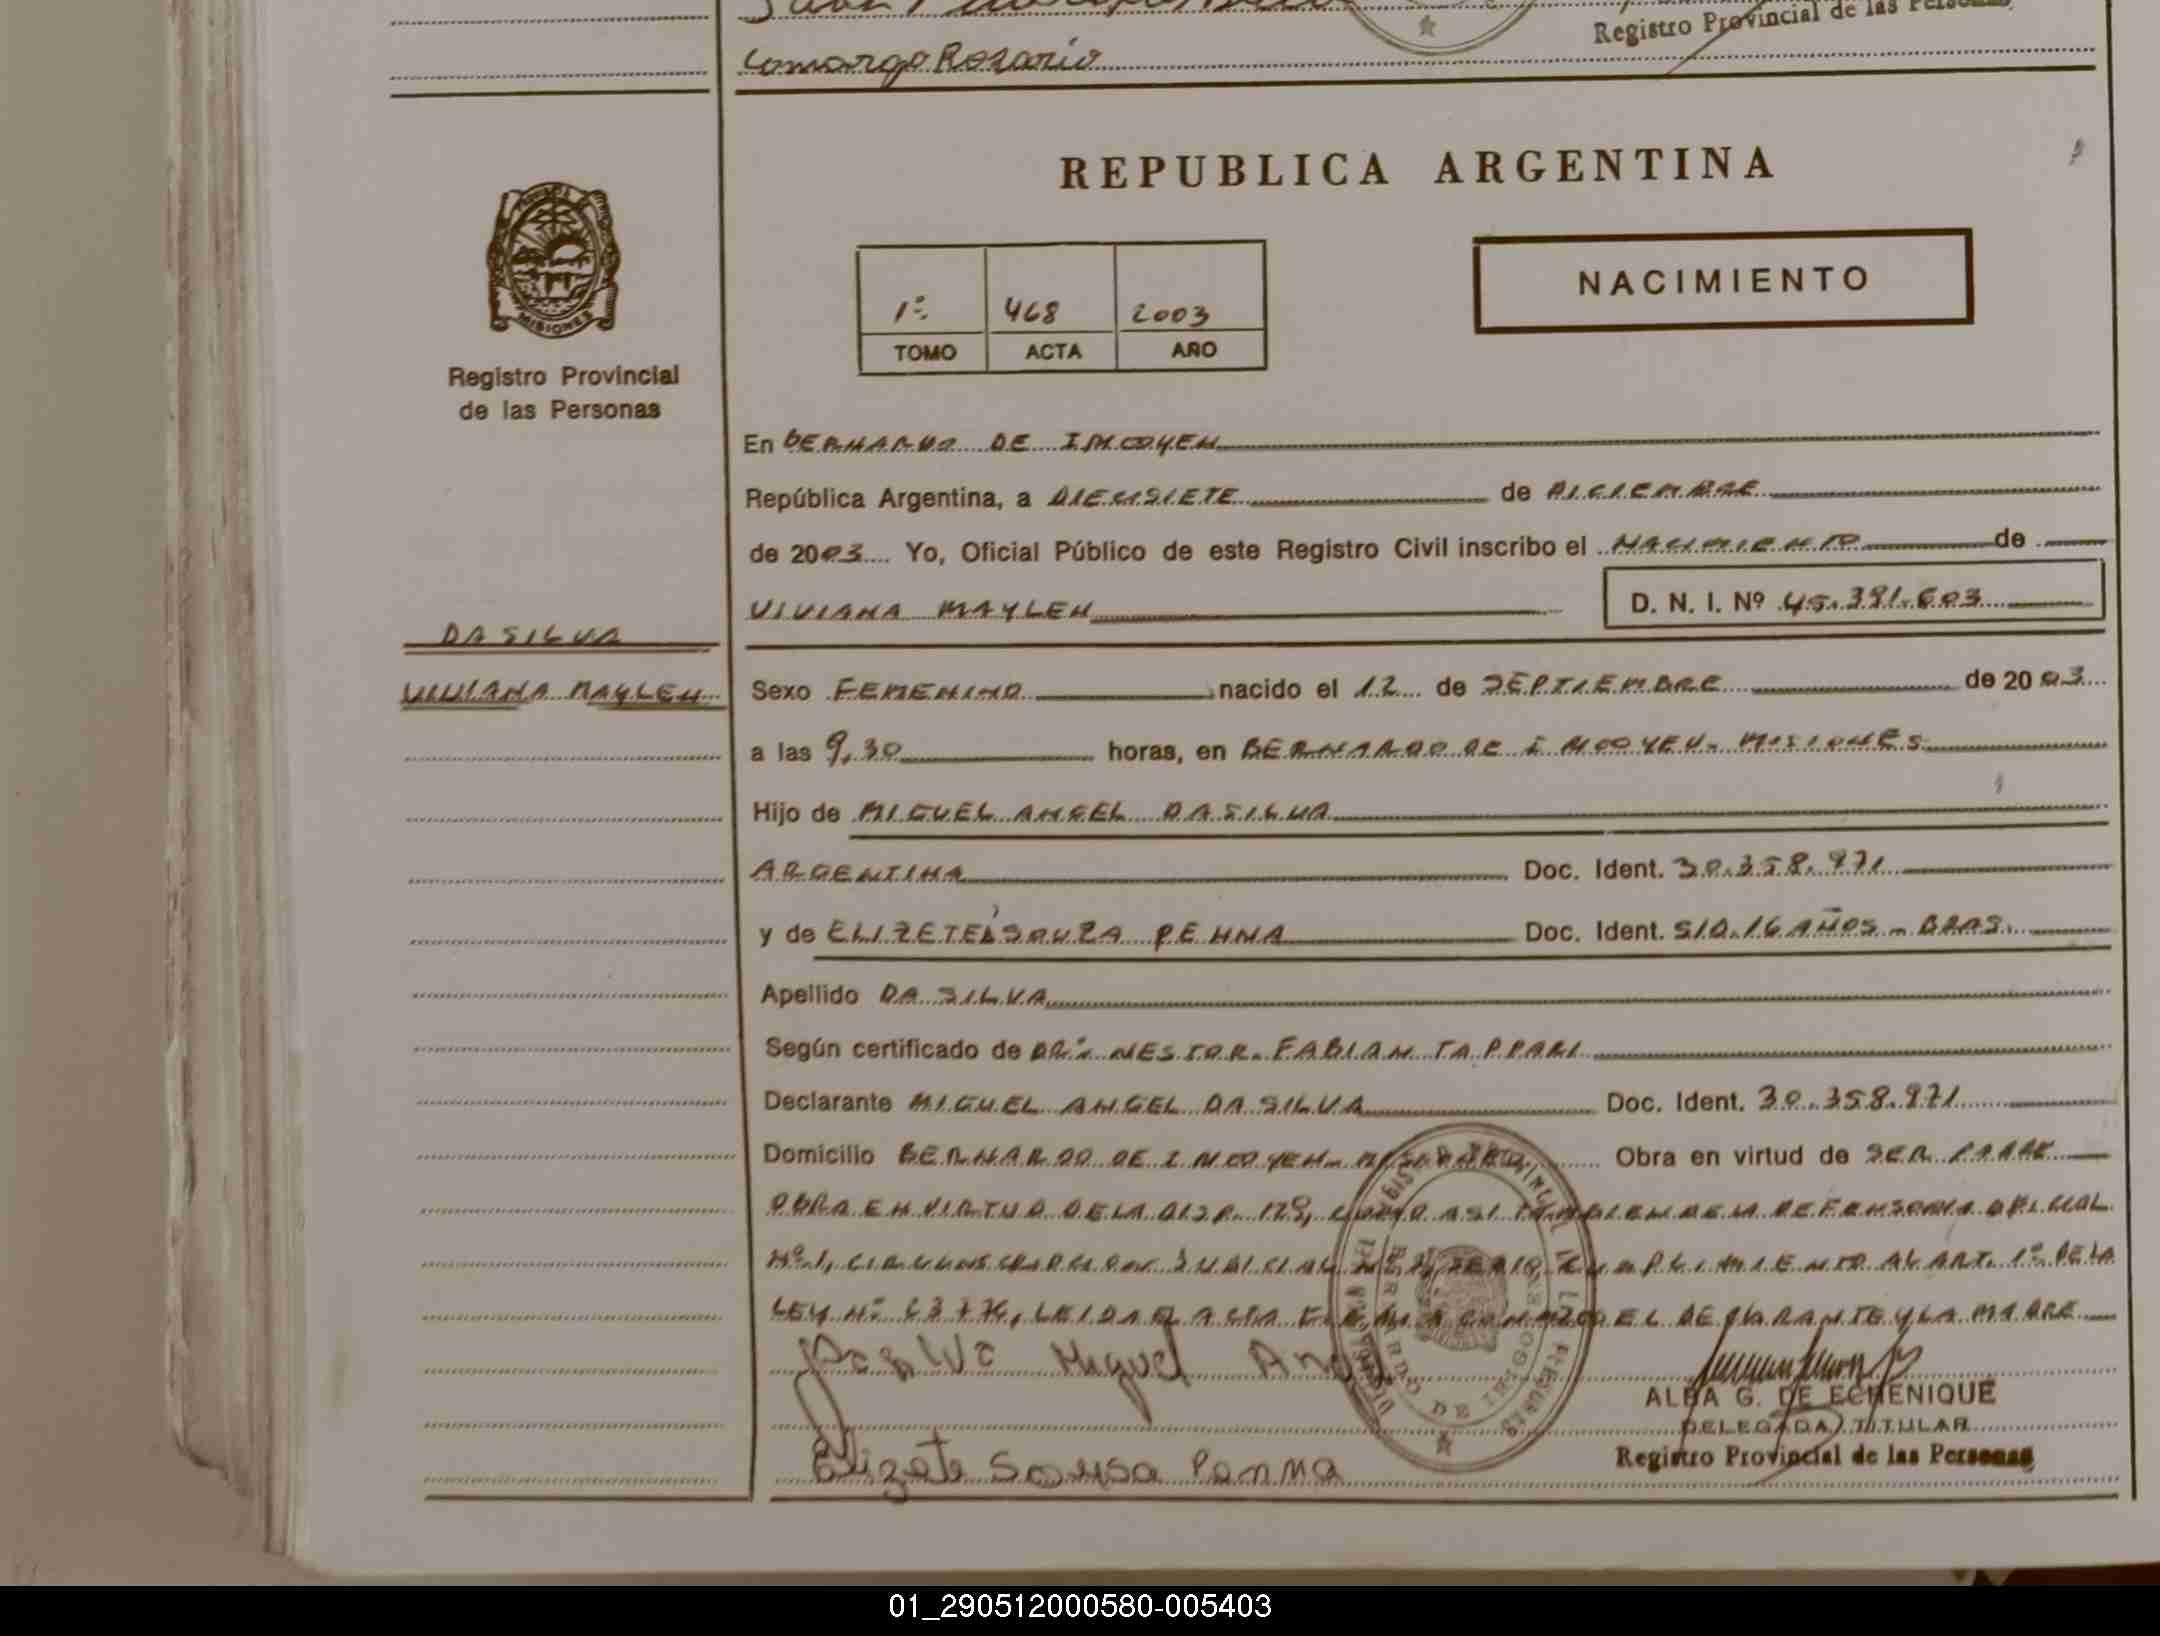 Camargo Rosario
Registro Provincial de las Personas
REPUBLICA ARGENTINA
NACIMIENTO
1º 468 2003
TOMO ACTA AÑO
PROVINCIA DE
MISIONES
Registro Provincial
de las Personas
En BERNARDO DE IRIGOYEN
República Argentina, a DIECISIETE de DICIEMBRE
de 2003 Yo, Oficial Público de este Registro Civil inscribo el NACIMIENTO de
VIVIANA MAYLEN D. N. I. Nº 45.391.603
DA SILVA
VIVIANA MAYLEN
Sexo FEMENINO nacido el 12 de SEPTIEMBRE de 2003
a las 9,30 horas, en BERNARDO DE IRIGOYEN- MISIONES
Hijo de MIGUEL ANGEL DA SILVA
ARGENTINA Doc. Ident. 30.358.971
y de ELIZETE SOUZA PENNA Doc. Ident. S/D.16 AÑOS - BRAS.
Apellido DA SILVA
Según certificado de DR. NESTOR FABIAN TAPPARI
Declarante MIGUEL ANGEL DA SILVA Doc. Ident. 30.358.971
Domicilio BERNARDO DE IRIGOYEN- MISIONES Obra en virtud de SER PADRE
OBRA EN VIRTUD DE LA DISP. 129, COMO ASI TAMBIEN DE LA DEFENSORIA OFICIAL
Nº 1, CIRCUNSCRIPCION JUDICIAL CUMPLIMIENTO AL ART. 1º DE LA
LEY Nº LEIDA EL ACTA FIRMA CONMIGO EL DECLARANTE Y LA MADRE
Da Silva Miguel Angel
ALBA G. DE ECHENIQUE
DELEGADA TITULAR
Registro Provincial de las Personas
Elizete Souza Panna
BERNARDO DE IRIGOYEN
01_290512000580-005403